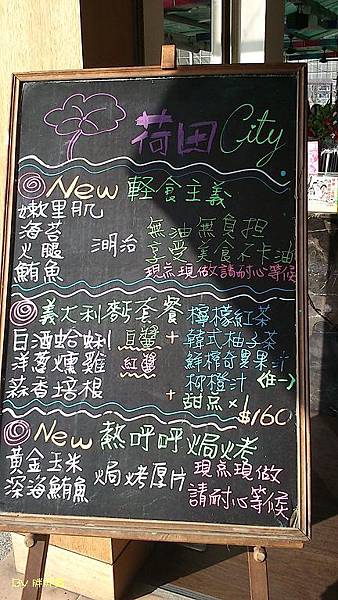 荷田City
New 軽食主義
嫩里肌
海苔
火腿
鮪魚
洞治
無油無負担
享受美食不卡油
現点現做請耐心等候
義大利麵套餐
白酒蛤蜊
洋蔥燻雞
蒜香培根
+
檸檬紅茶
韓式柚子茶
鮮檸奇異果汁
柳橙汁
<任一>
+甜点×1
$160
New 熱呼呼焗烤
黃金玉米
深海鮪魚
焗烤厚片
現点現做
請耐心等候
By